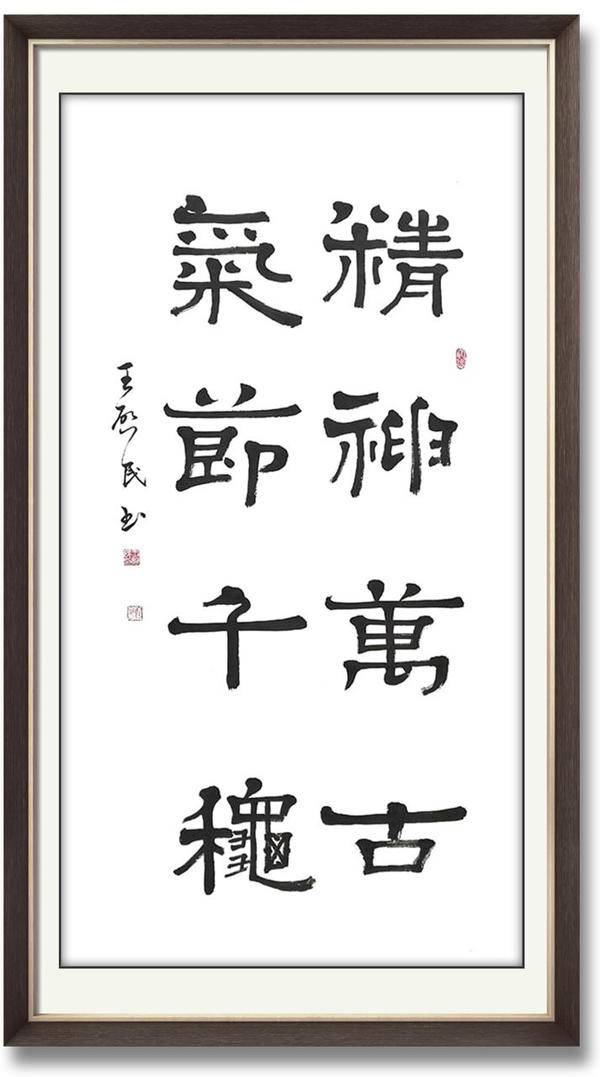 精神萬古
氣節千龝
王啟民书